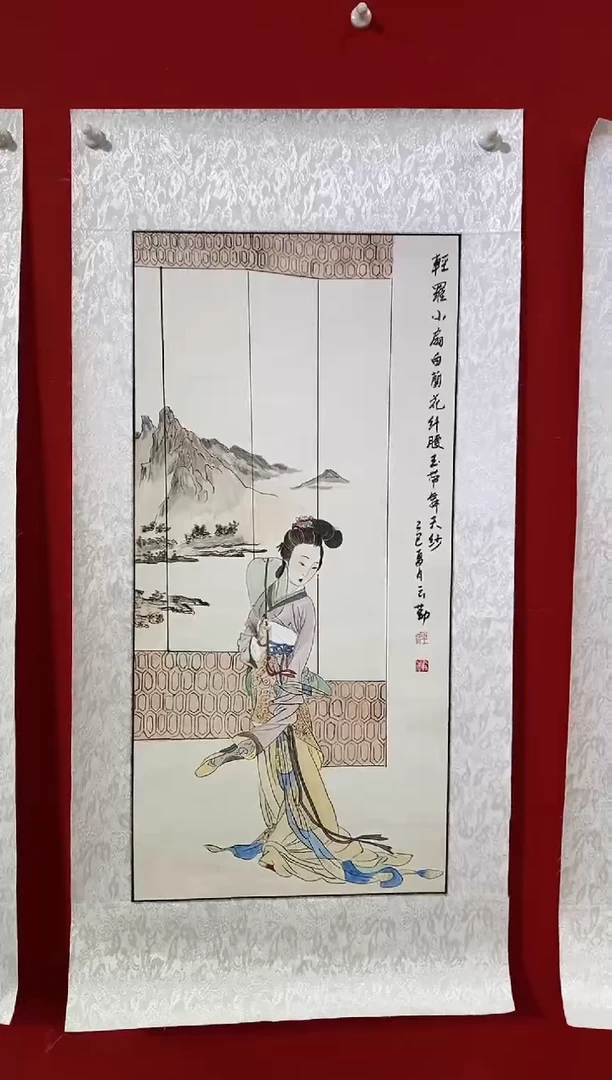 輕羅小扇白蘭花纤腰玉带舞天纱
乙巳夏月云勤